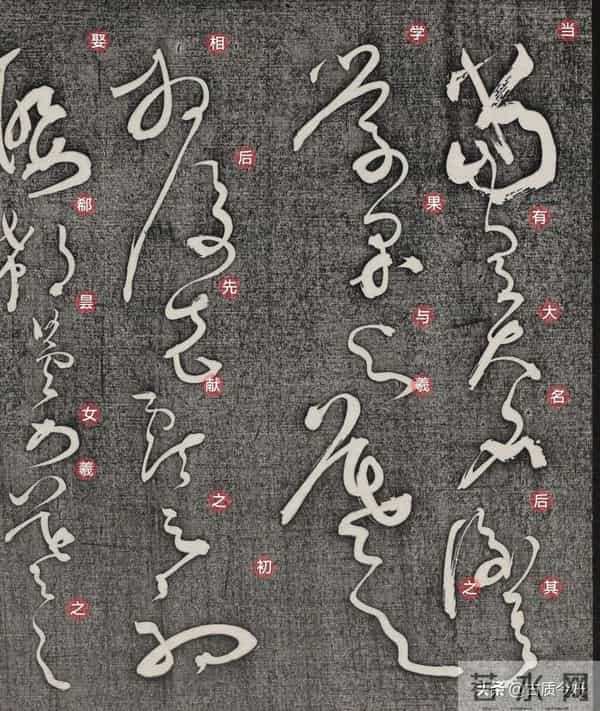 当有大名后其
学果与羲之
相后先献之初
娶郗昙女羲之
头条 @古质今妍